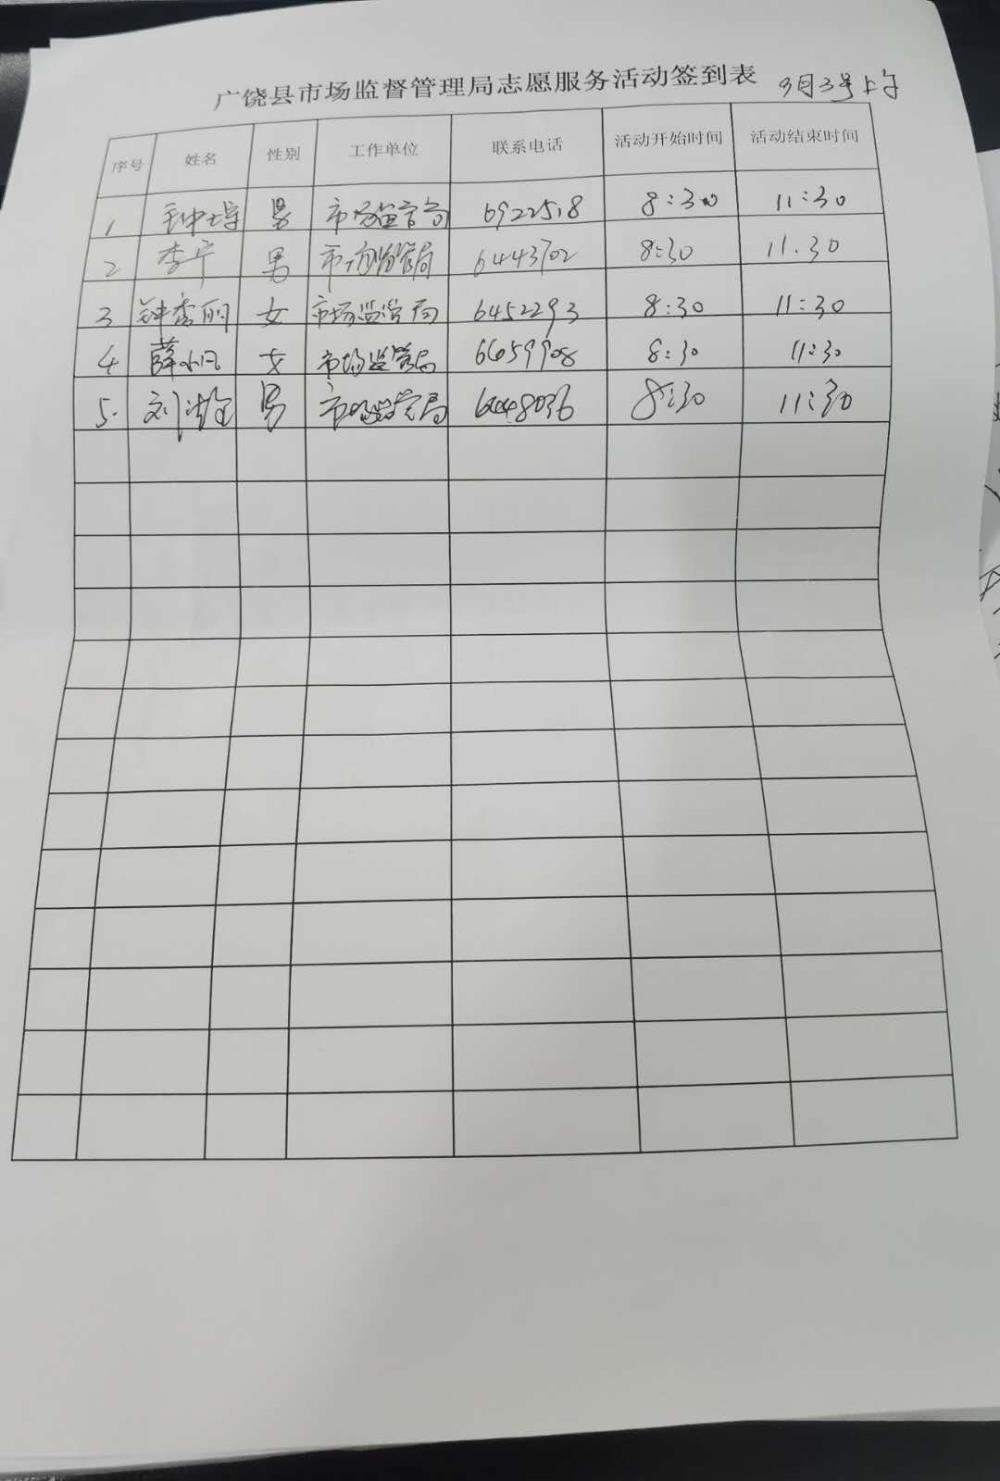 广饶县市场监督管理局志愿服务活动签到表 9月3号上午
序号 姓名 性别 工作单位 联系电话 活动开始时间 活动结束时间
1 男 市场监管局 6922518 8:30 11:30
2 李宁 男 市场监管局 6443702 8:30 11.30
3 钟秀丽 女 市场监管局 6452293 8:30 11:30
4 薛小凡 女 市场监管局 6659908 8:30 11:30
5. 男 市场监管局 8:30 11:30